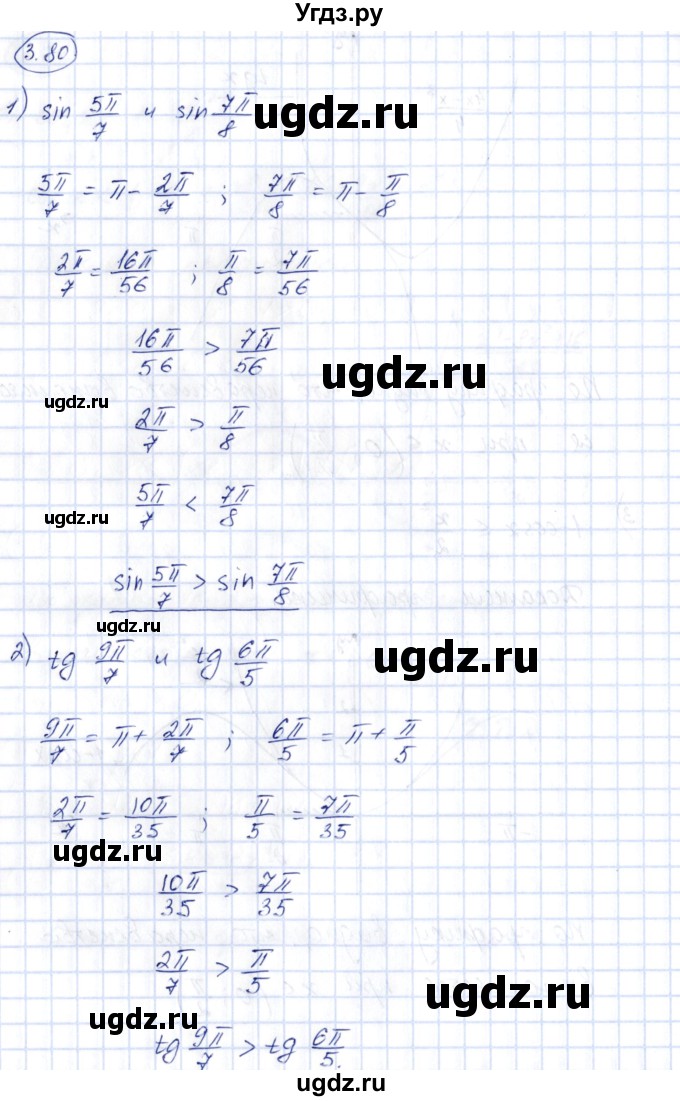 Угдз.ру
3.80
1) sin 5π/7 и sin 7π/8
ugdz.ru
5π/7 = π - 2π/7 ; 7π/8 = π - π/8
2π/7 = 16π/56 ; π/8 = 7π/56
16π/56 > 7π/56
ugdz.ru
ugdz.ru
2π/7 > π/8
5π/7 < 7π/8
ugdz.ru
sin 5π/7 > sin 7π/8
ugdz.ru
2) tg 9π/7 и tg 6π/5
ugdz.ru
9π/7 = π + 2π/7 ; 6π/5 = π + π/5
2π/7 = 10π/35 ; π/5 = 7π/35
ugdz.ru
10π/35 > 7π/35
2π/7 > π/5
ugdz.ru
ugdz.ru
tg 9π/7 > tg 6π/5.
ugdz.ru